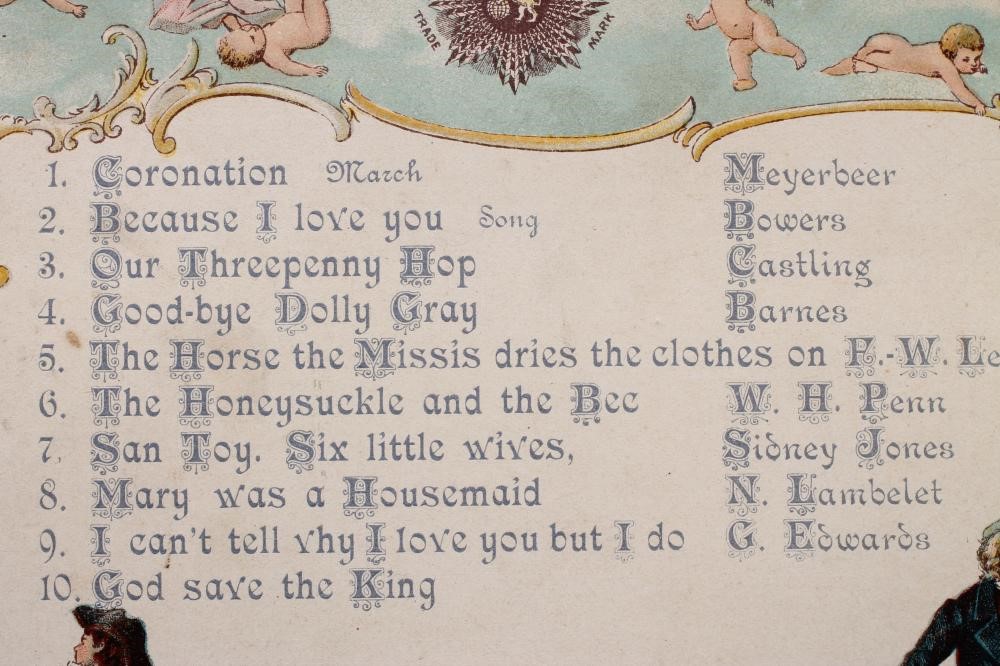 TRADE MARK
1. Coronation March Meyerbeer
2. Because I love you Song Bowers
3. Our Threepenny Hop Castling
4. Good-bye Dolly Gray Barnes
5. The Horse the Missis dries the clothes on F.-W. Le
6. The Honeysuckle and the Bee W. H. Penn
7. San Toy. Six little wives, Sidney Jones
8. Mary was a Housemaid N. Lambelet
9. I can't tell vhy I love you but I do G. Edwards
10. God save the King